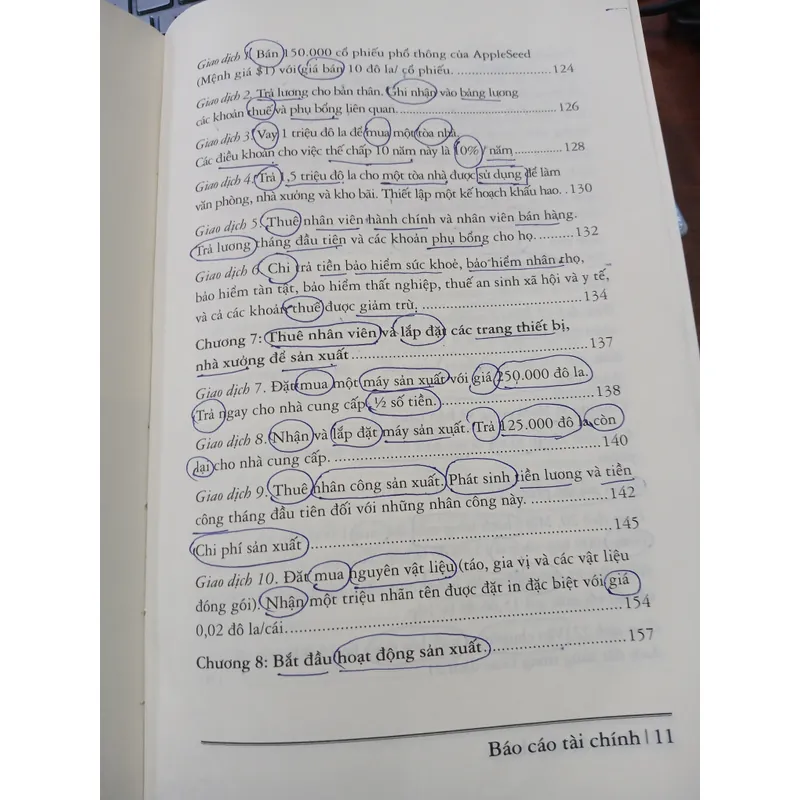 Giao dịch 1. Bán 150.000 cổ phiếu phổ thông của AppleSeed
(Mệnh giá $1) với giá bán 10 đô la/ cổ phiếu. ..............................124
Giao dịch 2. Trả lương cho bản thân. Ghi nhận vào bảng lương
các khoản thuế và phụ bổng liên quan..............................126
Giao dịch 3. Vay 1 triệu đô la để mua một tòa nhà.
Các điều khoản cho việc thế chấp 10 năm này là 10% / năm..............................128
Giao dịch 4. Trả 1,5 triệu đô la cho một tòa nhà được sử dụng để làm
văn phòng, nhà xưởng và kho bãi. Thiết lập một kế hoạch khấu hao. ..130
Giao dịch 5. Thuê nhân viên hành chính và nhân viên bán hàng.
Trả lương tháng đầu tiên và các khoản phụ bổng cho họ. ..........132
Giao dịch 6. Chi trả tiền bảo hiểm sức khoẻ, bảo hiểm nhân thọ,
bảo hiểm tàn tật, bảo hiểm thất nghiệp, thuế an sinh xã hội và y tế,
và cả các khoản thuế được giảm trừ. ..............................134
Chương 7: Thuê nhân viên và lắp đặt các trang thiết bị,
nhà xưởng để sản xuất..............................137
Giao dịch 7. Đặt mua một máy sản xuất với giá 250.000 đô la.
Trả ngay cho nhà cung cấp ½ số tiền. ..............................138
Giao dịch 8. Nhận và lắp đặt máy sản xuất. Trả 125.000 đô la còn
lại cho nhà cung cấp. ..............................140
Giao dịch 9. Thuê nhân công sản xuất. Phát sinh tiền lương và tiền
công tháng đầu tiên đối với những nhân công này. ....................142
Chi phí sản xuất ..............................145
Giao dịch 10. Đặt mua nguyên vật liệu (táo, gia vị và các vật liệu
đóng gói). Nhận một triệu nhãn tên được đặt in đặc biệt với giá
0,02 đô la/cái..............................154
Chương 8: Bắt đầu hoạt động sản xuất. ..............................157
Báo cáo tài chính | 11